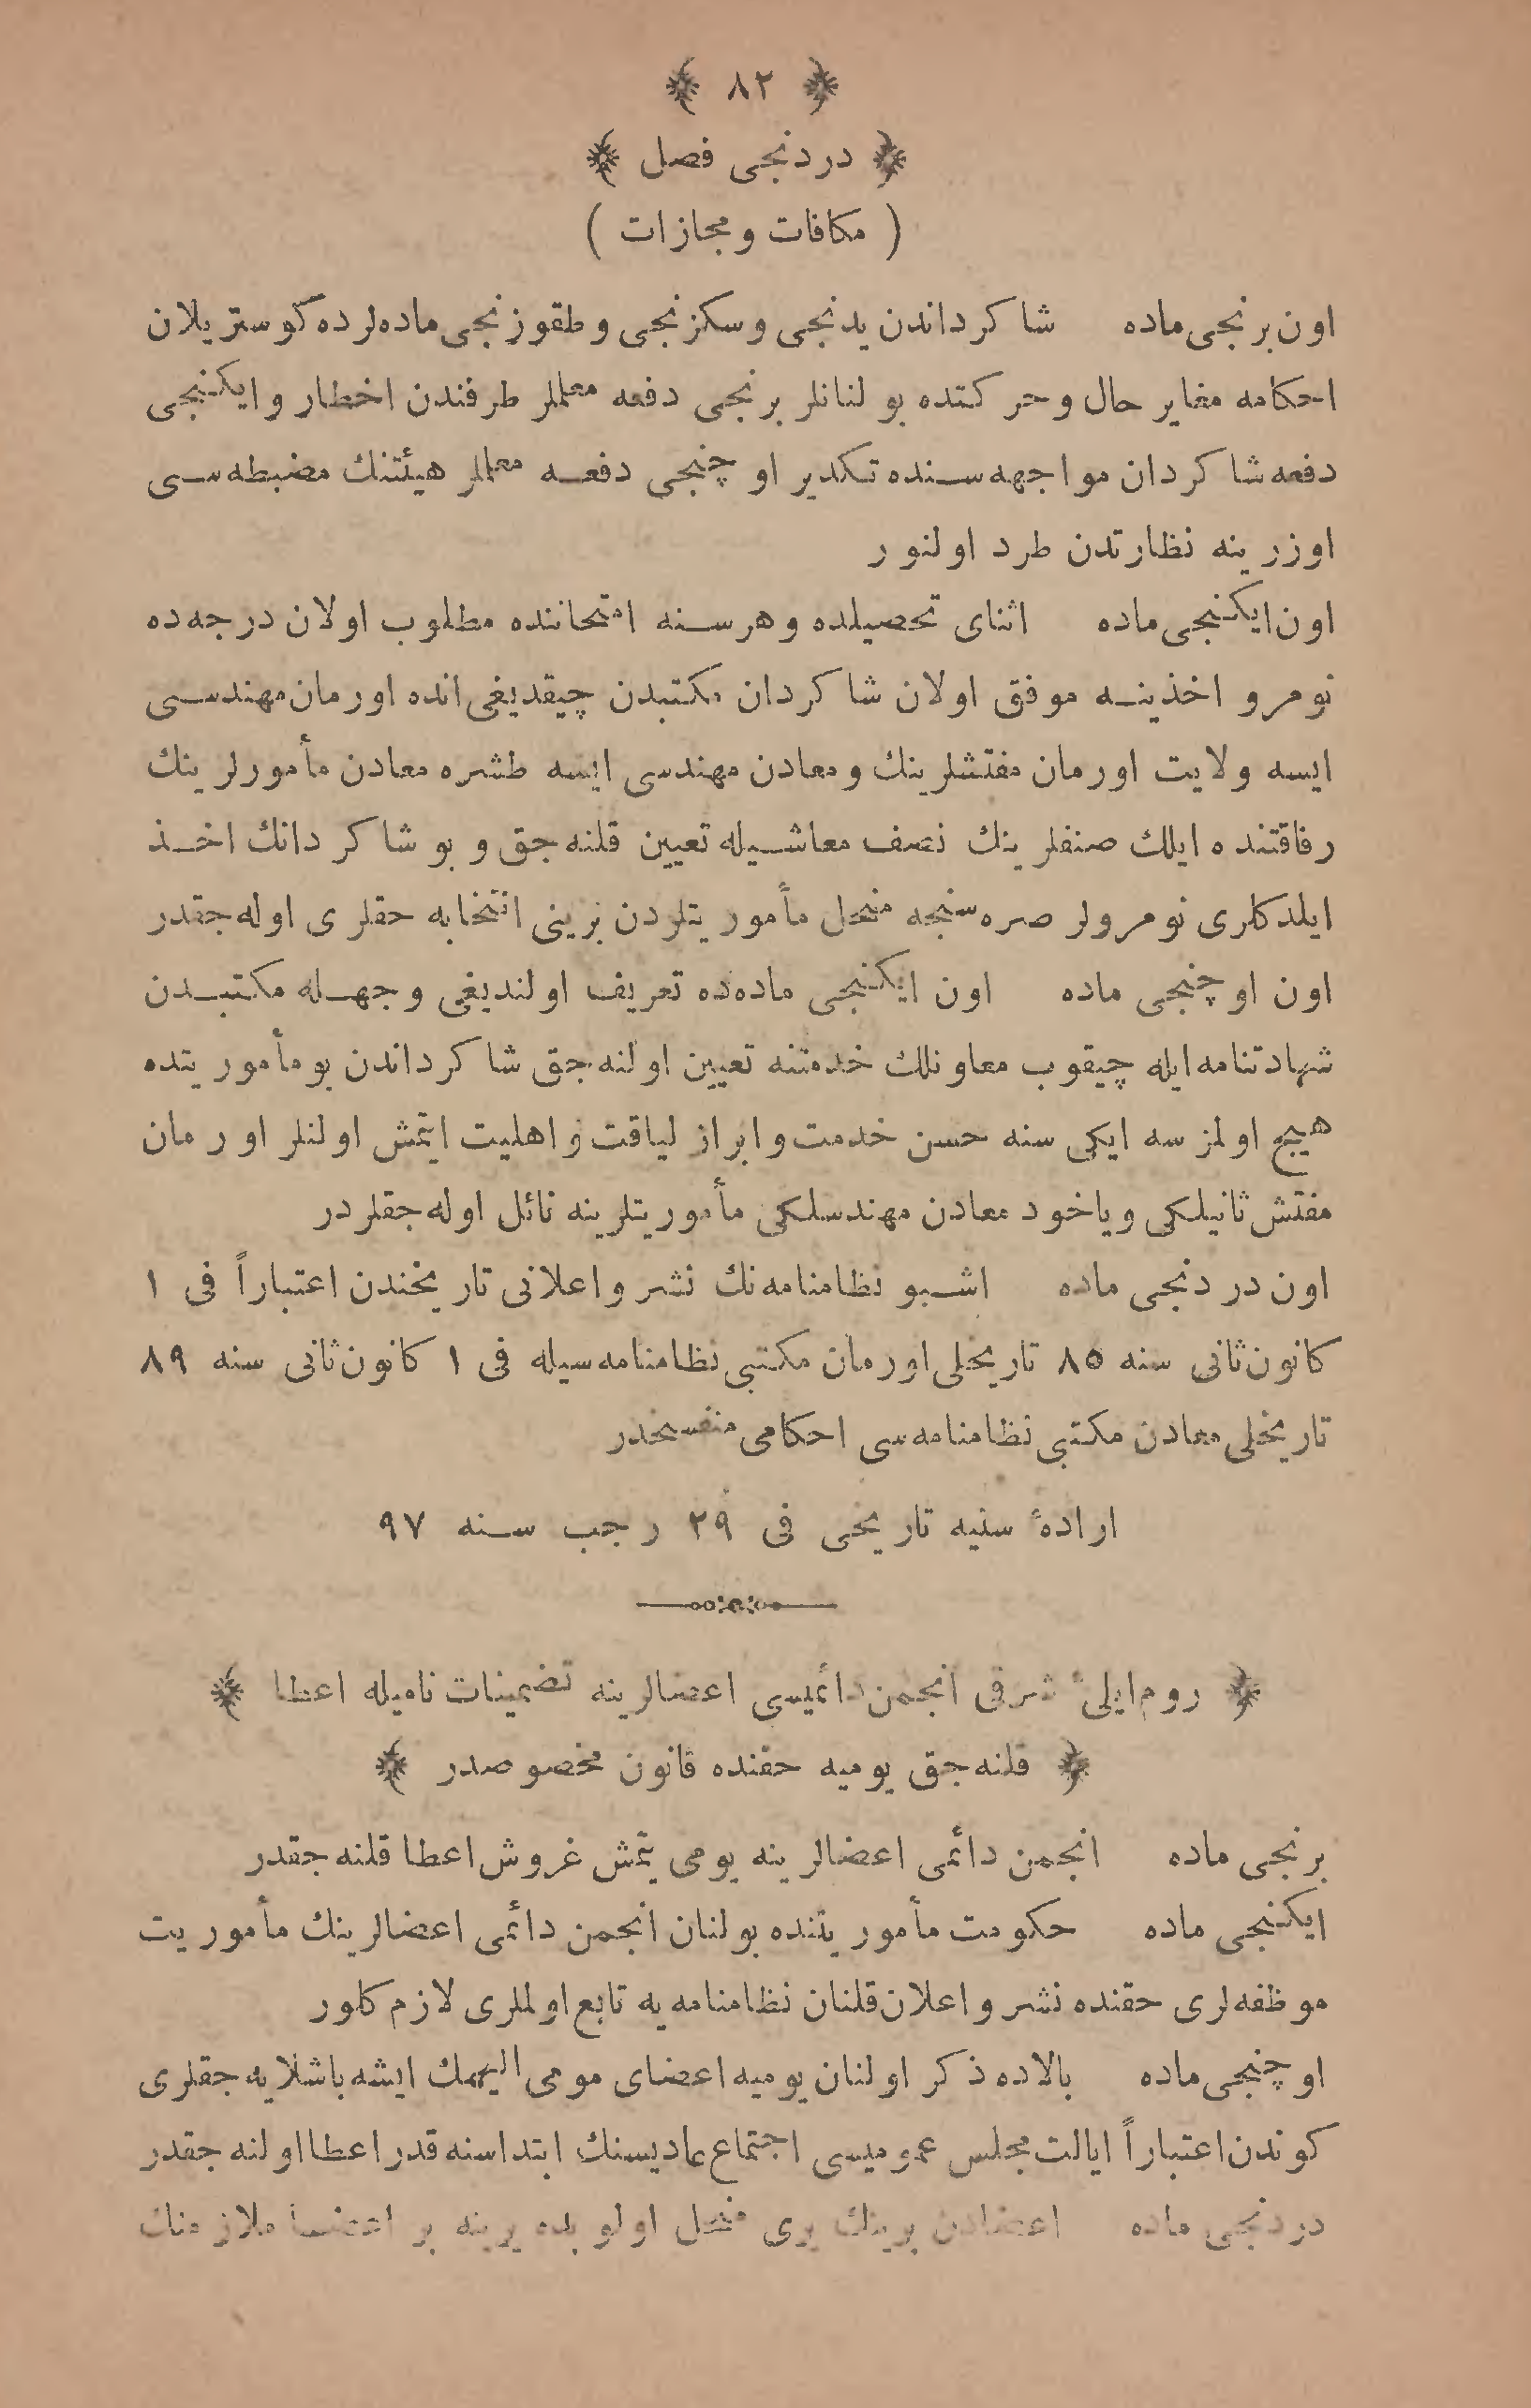 ﴿ ٨٢ ﴾
﴿ دردنجی فصل ﴾
( مكافات ومجازات )
اون برنجی ماده شا كرداندن یدنجی وسكزنجی وطقوزنجی ماده‌لرده كوستریلان
احكامه مغایر حال وحركتده بولنانلر برنجی دفعه معلملر طرفندن اخطار وایكنجی
دفعه شاكردان مواجهه‌سنده تكدیر اوچنجی دفعه معلملر هیئتنك مضبطه‌سی
اوزرینه نظارتدن طرد اولنور
اون ایكنجی ماده اثنای تحصیلده وهرسنه امتحاننده مطلوب اولان درجه‌ده
نومرو اخذینه موفق اولان شاكردان مكتبدن چیقدیغی انده اورمان مهندسی
ایسه ولایت اورمان مفتشلرینك ومعادن مهندسی ایسه طشره معادن مأمورلرینك
رفاقتنده ایلك صنفلرینك نصف معاشیله تعیین قلنه‌جق وبو شاكردانك اخذ
ایلدكلری نومرولر صره‌سنجه منحل مأموریتلردن برینی انتخابه حقلری اوله‌جقدر
اون اوچنجی ماده اون ایكنجی ماده‌ده تعریف اولندیغی وجهله مكتبدن
شهادتنامه ایله چیقوب معاونلك خدمتنه تعیین اولنه‌جق شاكرداندن بومأموریتده
هیچ اولمز سه ایكی سنه حسن خدمت وابراز لیاقت واهلیت ایتمش اولنلر اورمان
مفتش ثانیلكی ویاخود معادن مهندسلكی مأموریتلرینه نائل اوله‌جقلردر
اون دردنجی ماده اشبو نظامنامه‌نك نشر واعلانی تاریخندن اعتباراً فی ١
كانون ثانی سنه ٨٥ تاریخلی اورمان مكتبی نظامنامه‌سیله فی ١ كانون ثانی سنه ٨٩
تاریخلی معادن مكتبی نظامنامه‌سی احكامی منفسخدر
ارادهٔ سنیه تاریخی فی ٢٩ رجب سنه ٩٧
﴿ روم ایلیٔ شرقی انجمن دائمیسی اعضالرینه تضمینات نامیله اعطا ﴾
﴿ قلنه‌جق یومیه حقنده قانون مخصوصدر ﴾
برنجی ماده انجمن دائمی اعضالرینه یومی یتمش غروش اعطا قلنه جقدر
ایكنجی ماده حكومت مأموریتنده بولنان انجمن دائمی اعضالرینك مأموریت
موظفه‌لری حقنده نشر واعلان قلنان نظامنامه‌یه تابع اولملری لازم كلور
اوچنجی ماده بالاده ذكر اولنان یومیه اعضای مومی الیهمك ایشه باشلایه‌جقلری
كوندن اعتباراً ایالت مجلس عمومیسی اجتماع عادیسنك ابتداسنه قدر اعطا اولنه جقدر
دردنجی ماده اعضادن برینك یری منحل اولوبده یرینه بر اعضا ملازمنك